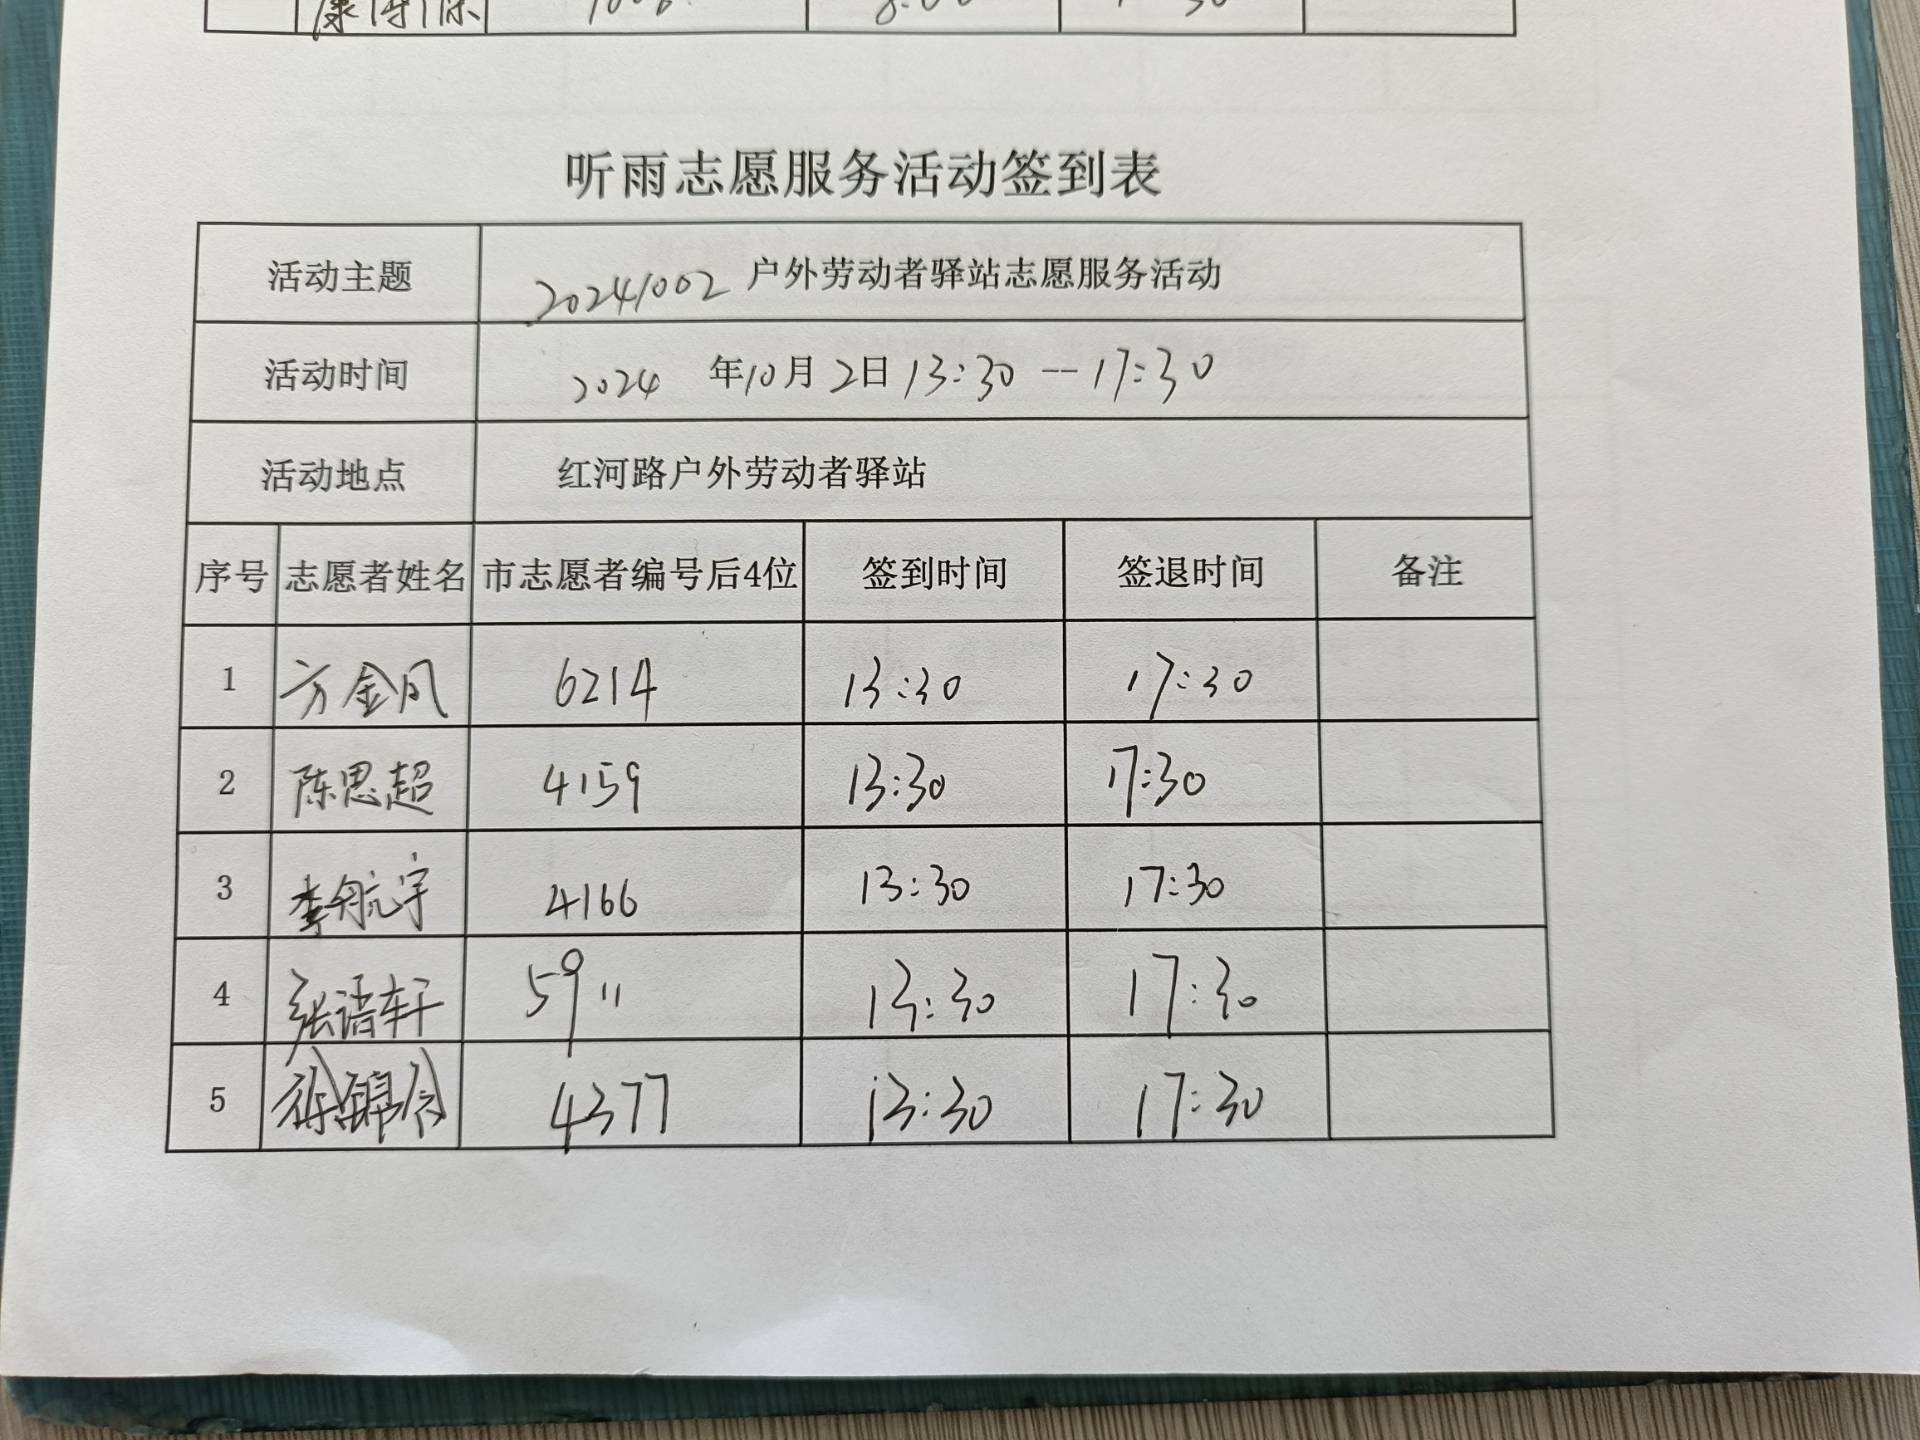 听雨志愿服务活动签到表
活动主题 20241002 户外劳动者驿站志愿服务活动
活动时间 2024 年10月2日 13:30--17:30
活动地点 红河路户外劳动者驿站
序号 志愿者姓名 市志愿者编号后4位 签到时间 签退时间 备注
1 方金凤 6214 13:30 17:30
2 陈思超 4159 13:30 17:30
3 李航宇 4166 13:30 17:30
4 张语轩 5911 13:30 17:30
5 4377 13:30 17:30